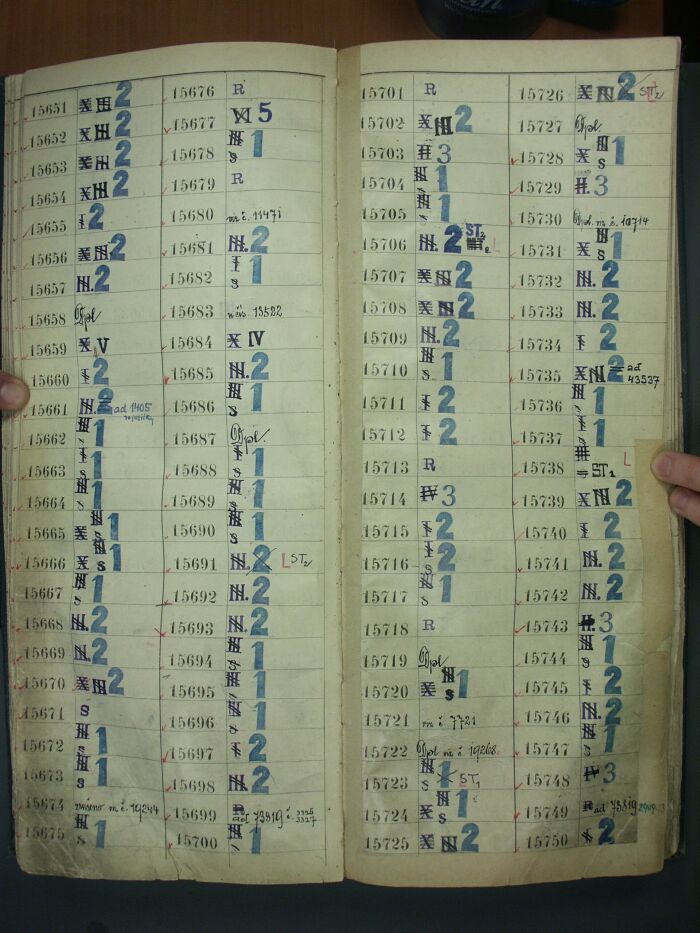 15651 X III 2
15652 X III 2
15653 X III 2
15654 X III 2
15655 I 2
15656 X III. 2
15657 III. 2
15658 Dpl
15659 X V
15660 I 2
15661 III. 2 ad 1405
15662 III s 1
15663 I s 1
15664 III s 1
15665 X III s 1
15666 X III s 1
15667 III s 1
15668 III. 2
15669 III. 2
15670 X III 2
15671 S
15672 III s 1
15673 III s 1
15674 zničeno n. č. 19244
15675 III s 1
15676 R
15677 VI 5
15678 III s 1
15679 R
15680 nz č. 11471
15681 III. 2
15682 I s 1
15683 13522
15684 X IV
15685 III. 2
15686 III s 1
15687 Dpl.
15688 I s 1
15689 III s 1
15690 III s 1
15691 III. 2 L ST2
15692 III. 2
15693 III. 2
15694 III s 1
15695 III 1
15696 III 1
15697 I 2
15698 III. 2
15699 R ad 73819 č. 3326 3327
15700 III 1
15701 R
15702 X III 2
15703 II 3
15704 III s 1
15705 III s 1
15706 III. 2 ST2 L
15707 X III 2
15708 X III 2
15709 III. 2
15710 III s 1
15711 I 2
15712 I 2
15713 R
15714 IV 3
15715 I 2
15716 I s 2
15717 III s 1
15718 R
15719 Dpl
15720 X III s 1
15721 nz č. 7721
15722 Dpl nz č. 19268
15723 III s 1 X ST1
15724 X III s 1
15725 X III 2
15726 X III 2 ST2
15727 Dpl.
15728 X III s 1
15729 II. 3
15730 Dpl. nz č. 10714
15731 X III s 1
15732 III. 2
15733 III. 2
15734 I 2
15735 X III 2 ad 43537
15736 III s 1
15737 I s 1
15738 III ST1 L
15739 X III 2
15740 I 2
15741 III. 2
15742 III. 2
15743 II. 3
15744 III s 1
15745 I 2
15746 III. 2
15747 III s 1
15748 IV 3
15749 R ad 73819
15750 S 2